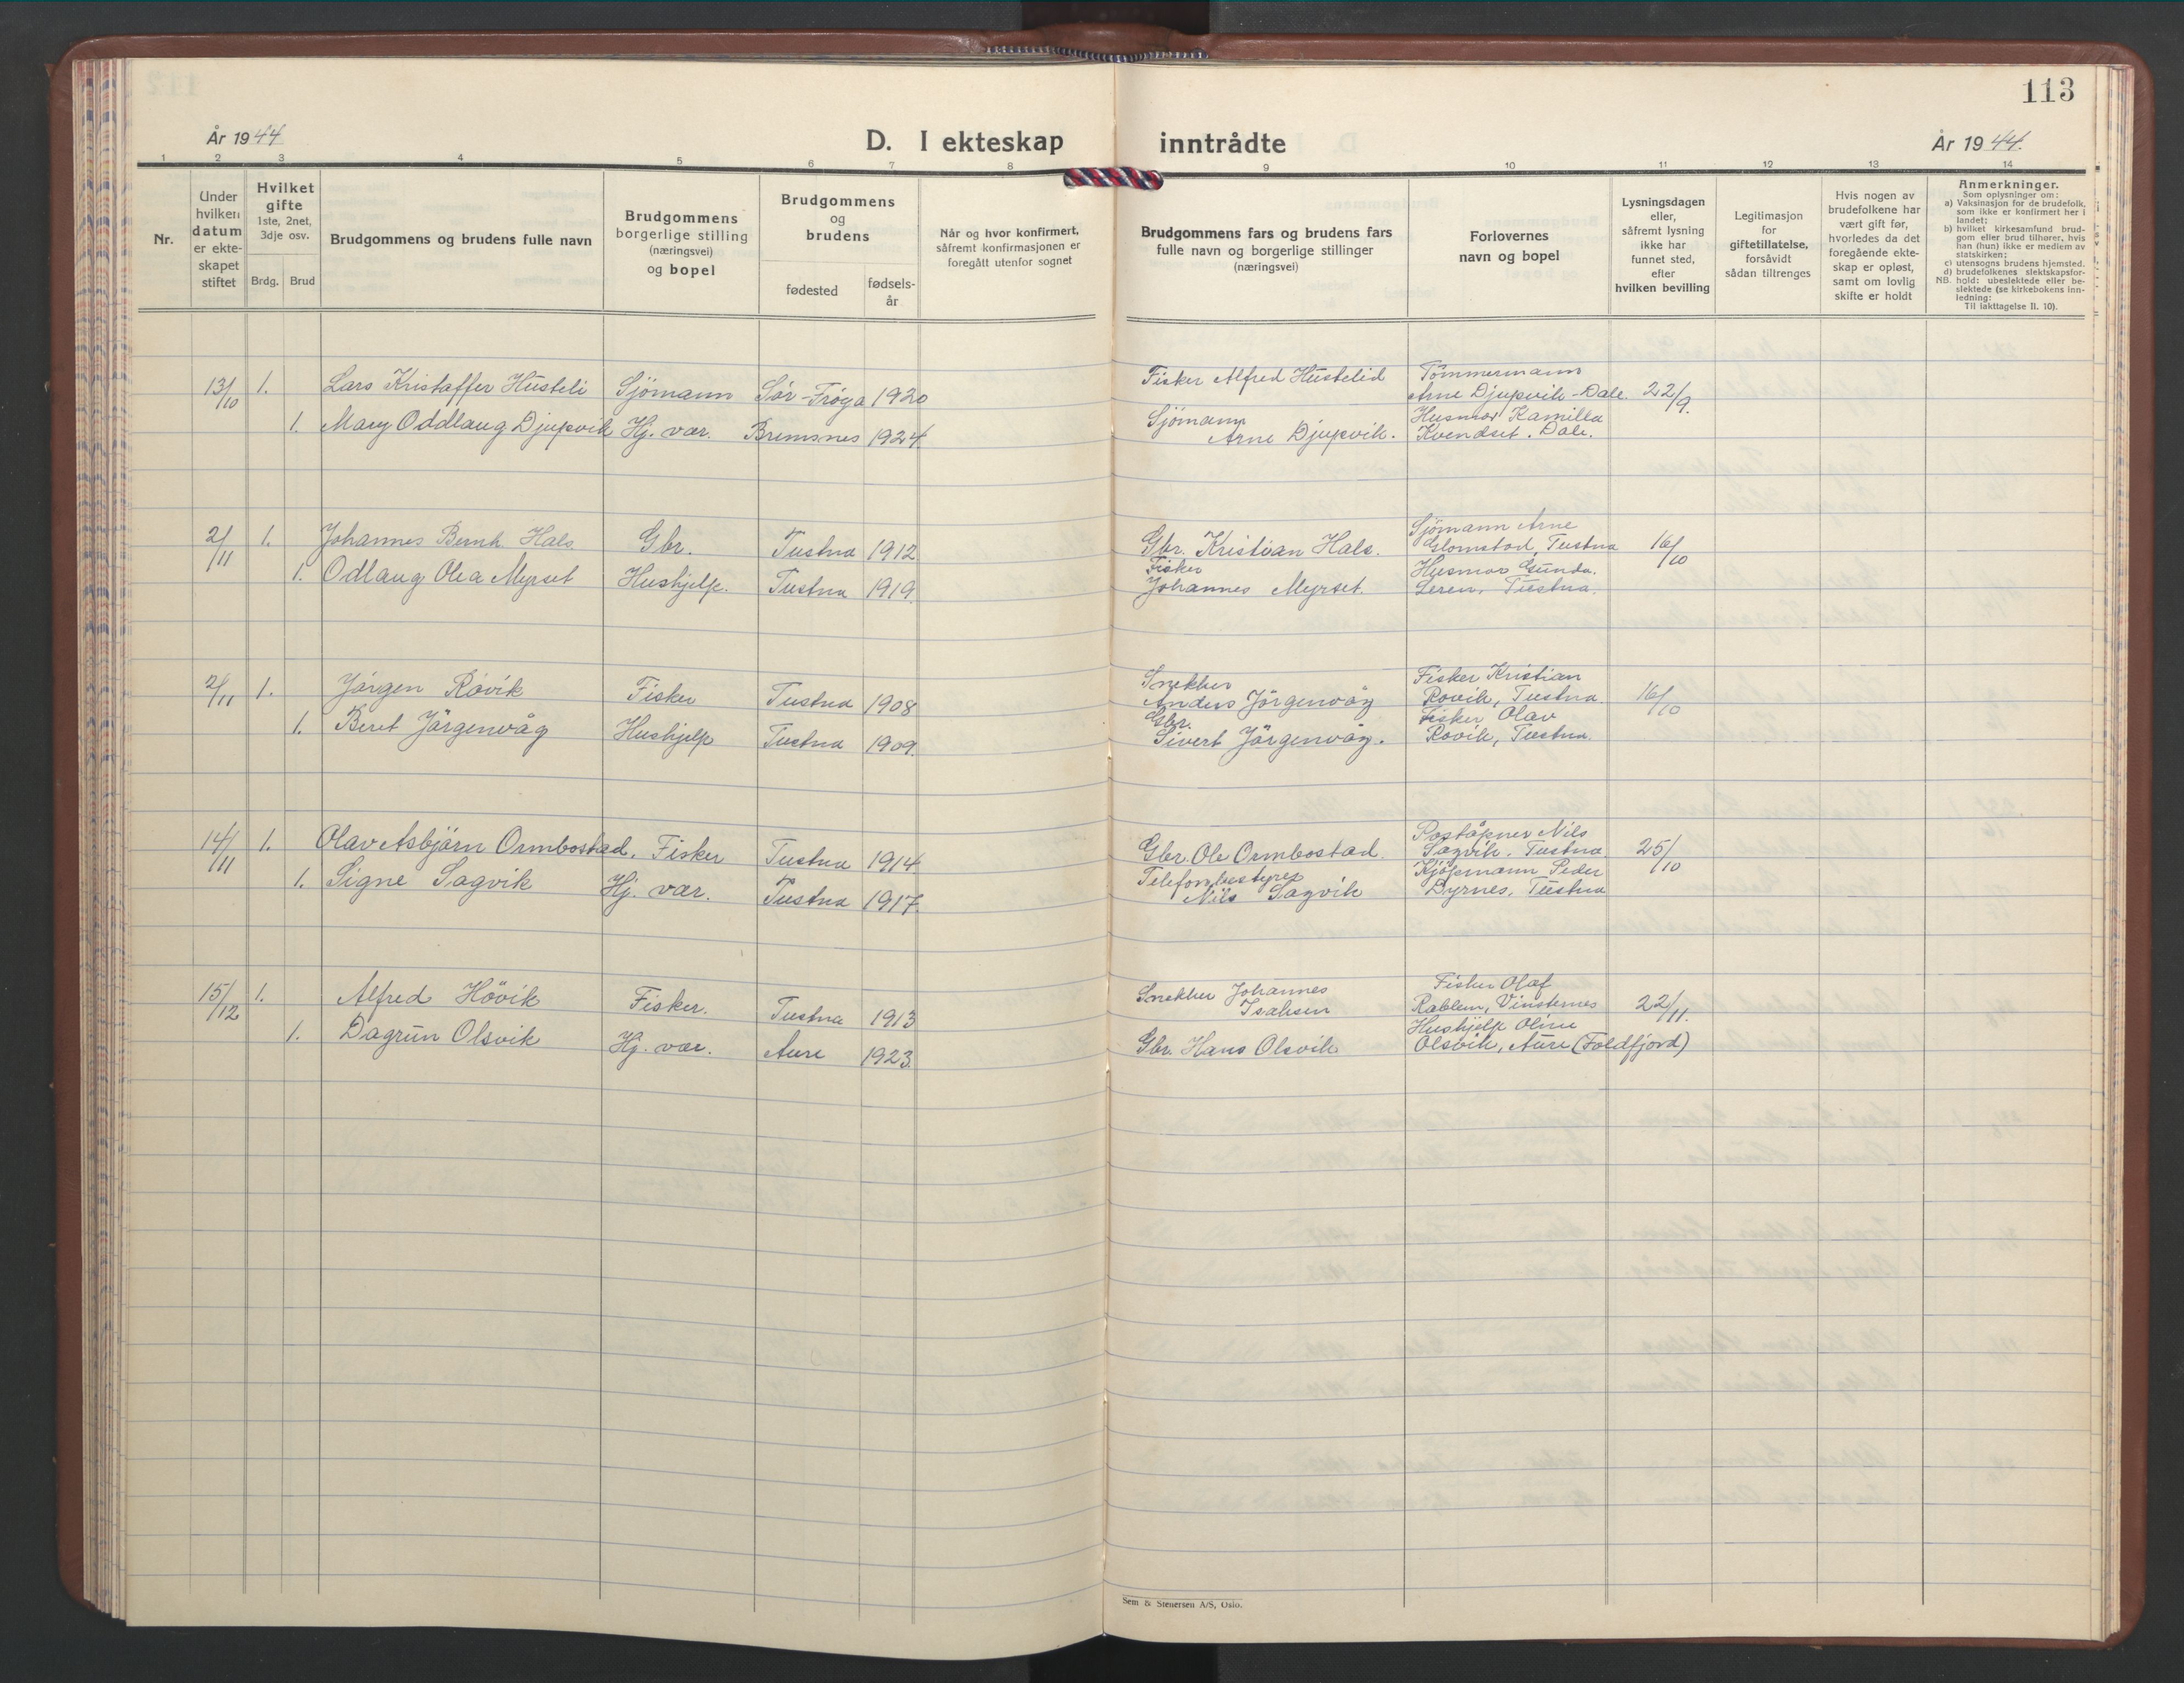 113
År 1944
D. I ekteskap inntrådte
År 1944.
1 2 3 4 5 6 7 8 9 10 11 12 13 14
Nr.
Under hvilken datum er ekteskapet stiftet
Hvilket gifte
1ste, 2net, 3dje osv.
Brdg. Brud
Brudgommens og brudens fulle navn
Brudgommens borgerlige stilling (næringsvei) og bopel
Brudgommens og brudens
fødested
fødsels-
år
Når og hvor konfirmert,
såfremt konfirmasjonen er
foregått utenfor sognet
Brudgommens fars og brudens fars
fulle navn og borgerlige stillinger
(næringsvei)
Forlovernes
navn og bopel
Lysningsdagen
eller,
såfremt lysning
ikke har
funnet sted,
efter
hvilken bevilling
Legitimasjon
for
giftetillatelse,
forsåvidt
sådan tiltrenges
Hvis nogen av
brudefolkene har
vært gift før,
hvorledes da det
foregående ekte-
skap er opløst,
samt om lovlig
skifte er holdt
Anmerkninger.
Som oplysninger om:
a) Vaksinasjon for de brudefolk,
som ikke er konfirmert her i
landet;
b) hvilket kirkesamfund brud-
gom eller brud tilhører, hvis
han (hun) ikke er medlem av
statskirken;
c) utensogns brudens hjemsted.
d) brudefolkenes slektskapsfor-
NB. hold: ubeslektede eller be-
slektede (se kirkebokens inn-
ledning:
Til iakttagelse II. 10).
13/10 1. Lars Kristoffer Husteli Sjömann Sör-Fröya 1920 Fisker Alfred Hustelid Tömmermann Arne Djupvik-Dale. 22/9.
1. Mary Oddlaug Djupvik Hj. vær. Bremsnes 1924 Sjömann Arne Djupvik. Husmor Kamilla Kvendset. Dale.
2/11 1. Johannes Bernh. Hals Gbr. Tustna 1912 Gbr. Kristian Hals. Sjömann Arne Glomstad, Tustna 16/10
1. Odlaug Olea Myrset Hushjelp. Tustna 1919. Fisker Johannes Myrset. Husmor Gunda. Leren, Tustna.
2/11 1. Jörgen Rövik Fisker Tustna 1908 Snekker Anders Jörgenvåg Fisker Kristian Rovik, Tustna. 16/10
1. Beret Jörgenvåg Hushjelp Tustna 1909. Gbr. Sivert Jörgenvåg. Fisker Olav Rovik, Tustna.
14/11 1. Olav Asbjörn Ormbostad. Fisker Tustna 1914. Gbr. Ole Ormbostad. Poståpner Nils Sagvik. Tustna 25/10
1. Signe Sagvik Hj. vær. Tustna 1917. Telefonbestyrer Nils Sagvik Kjöpmann Peder Dyrnes, Tustna
15/12 1. Alfred Hövik Fisker. Tustna 1913 Snekker Johannes Isaksen Fisker Olaf Rablem, Vinsternes 22/11.
1. Dagrun Olsvik Hj. vær. Aure 1923. Gbr. Hans Olsvik. Hushjelp Oline Olsvik, Aure (Foldfjord)
Sem & Stenersen A/S, Oslo.